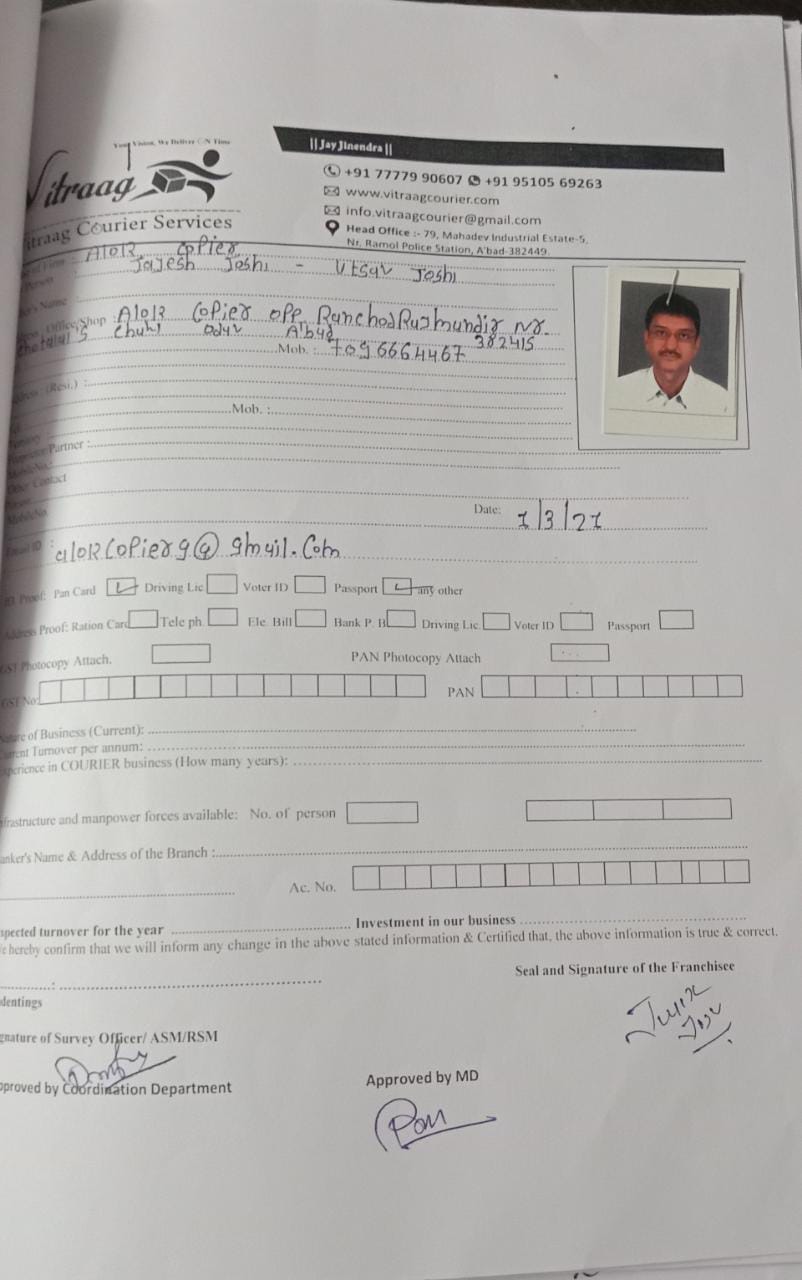 Your Vision, We Deliver ON Time
Vitraag
Vitraag Courier Services
|| Jay Jinendra ||
+91 77779 90607 +91 95105 69263
www.vitraagcourier.com
info.vitraagcourier@gmail.com
Head Office :- 79, Mahadev Industrial Estate-5,
Nr. Ramol Police Station, A'bad-382449.
of Firm : Alok Copier
Person Jajesh Joshi - Utsav Joshi
er's Name :
Office/Shop : Alok Copier opp Ranchod Rai mundir Nr.
odhv A'bad 382415
Mob. : 7096664467
(Resi.) :
Mob. :
Partner :
Mobile No. :
Other Contact
Person
Mobile No.
Date: 1/3/21
Email ID : alokcopier9@gmail.com
ID Proof: Pan Card Driving Lic Voter ID Passport any other
Address Proof: Ration Card Tele ph. Ele. Bill Bank P. B Driving Lic. Voter ID Passport
GST Photocopy Attach. PAN Photocopy Attach
GST No: PAN
Nature of Business (Current):
Current Turnover per annum:
xperience in COURIER business (How many years):
nfrastructure and manpower forces available: No. of person
anker's Name & Address of the Branch :
Ac. No.
xpected turnover for the year Investment in our business
e hereby confirm that we will inform any change in the above stated information & Certified that, the above information is true & correct.
Seal and Signature of the Franchisee
dentings
gnature of Survey Officer/ ASM/RSM
pproved by Coordination Department
Approved by MD